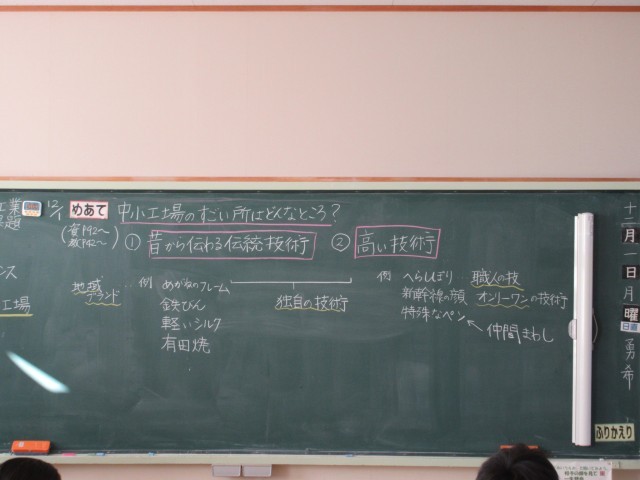 業
題
12/1
めあて
中小工場のすごい所はどんなところ？
(資192〜
教142〜)
① 昔から伝わる伝統技術
② 高い技術
ンス
工場
地域
ブランド
例
めがねのフレーム
鉄びん
軽いシルク
有田焼
独自の技術
例
へらしぼり
新幹線の顔
特殊なペン
職人の技
オンリーワンの技術
仲間まわし
十二月一日月曜
日直
勇
希
ふりかえり